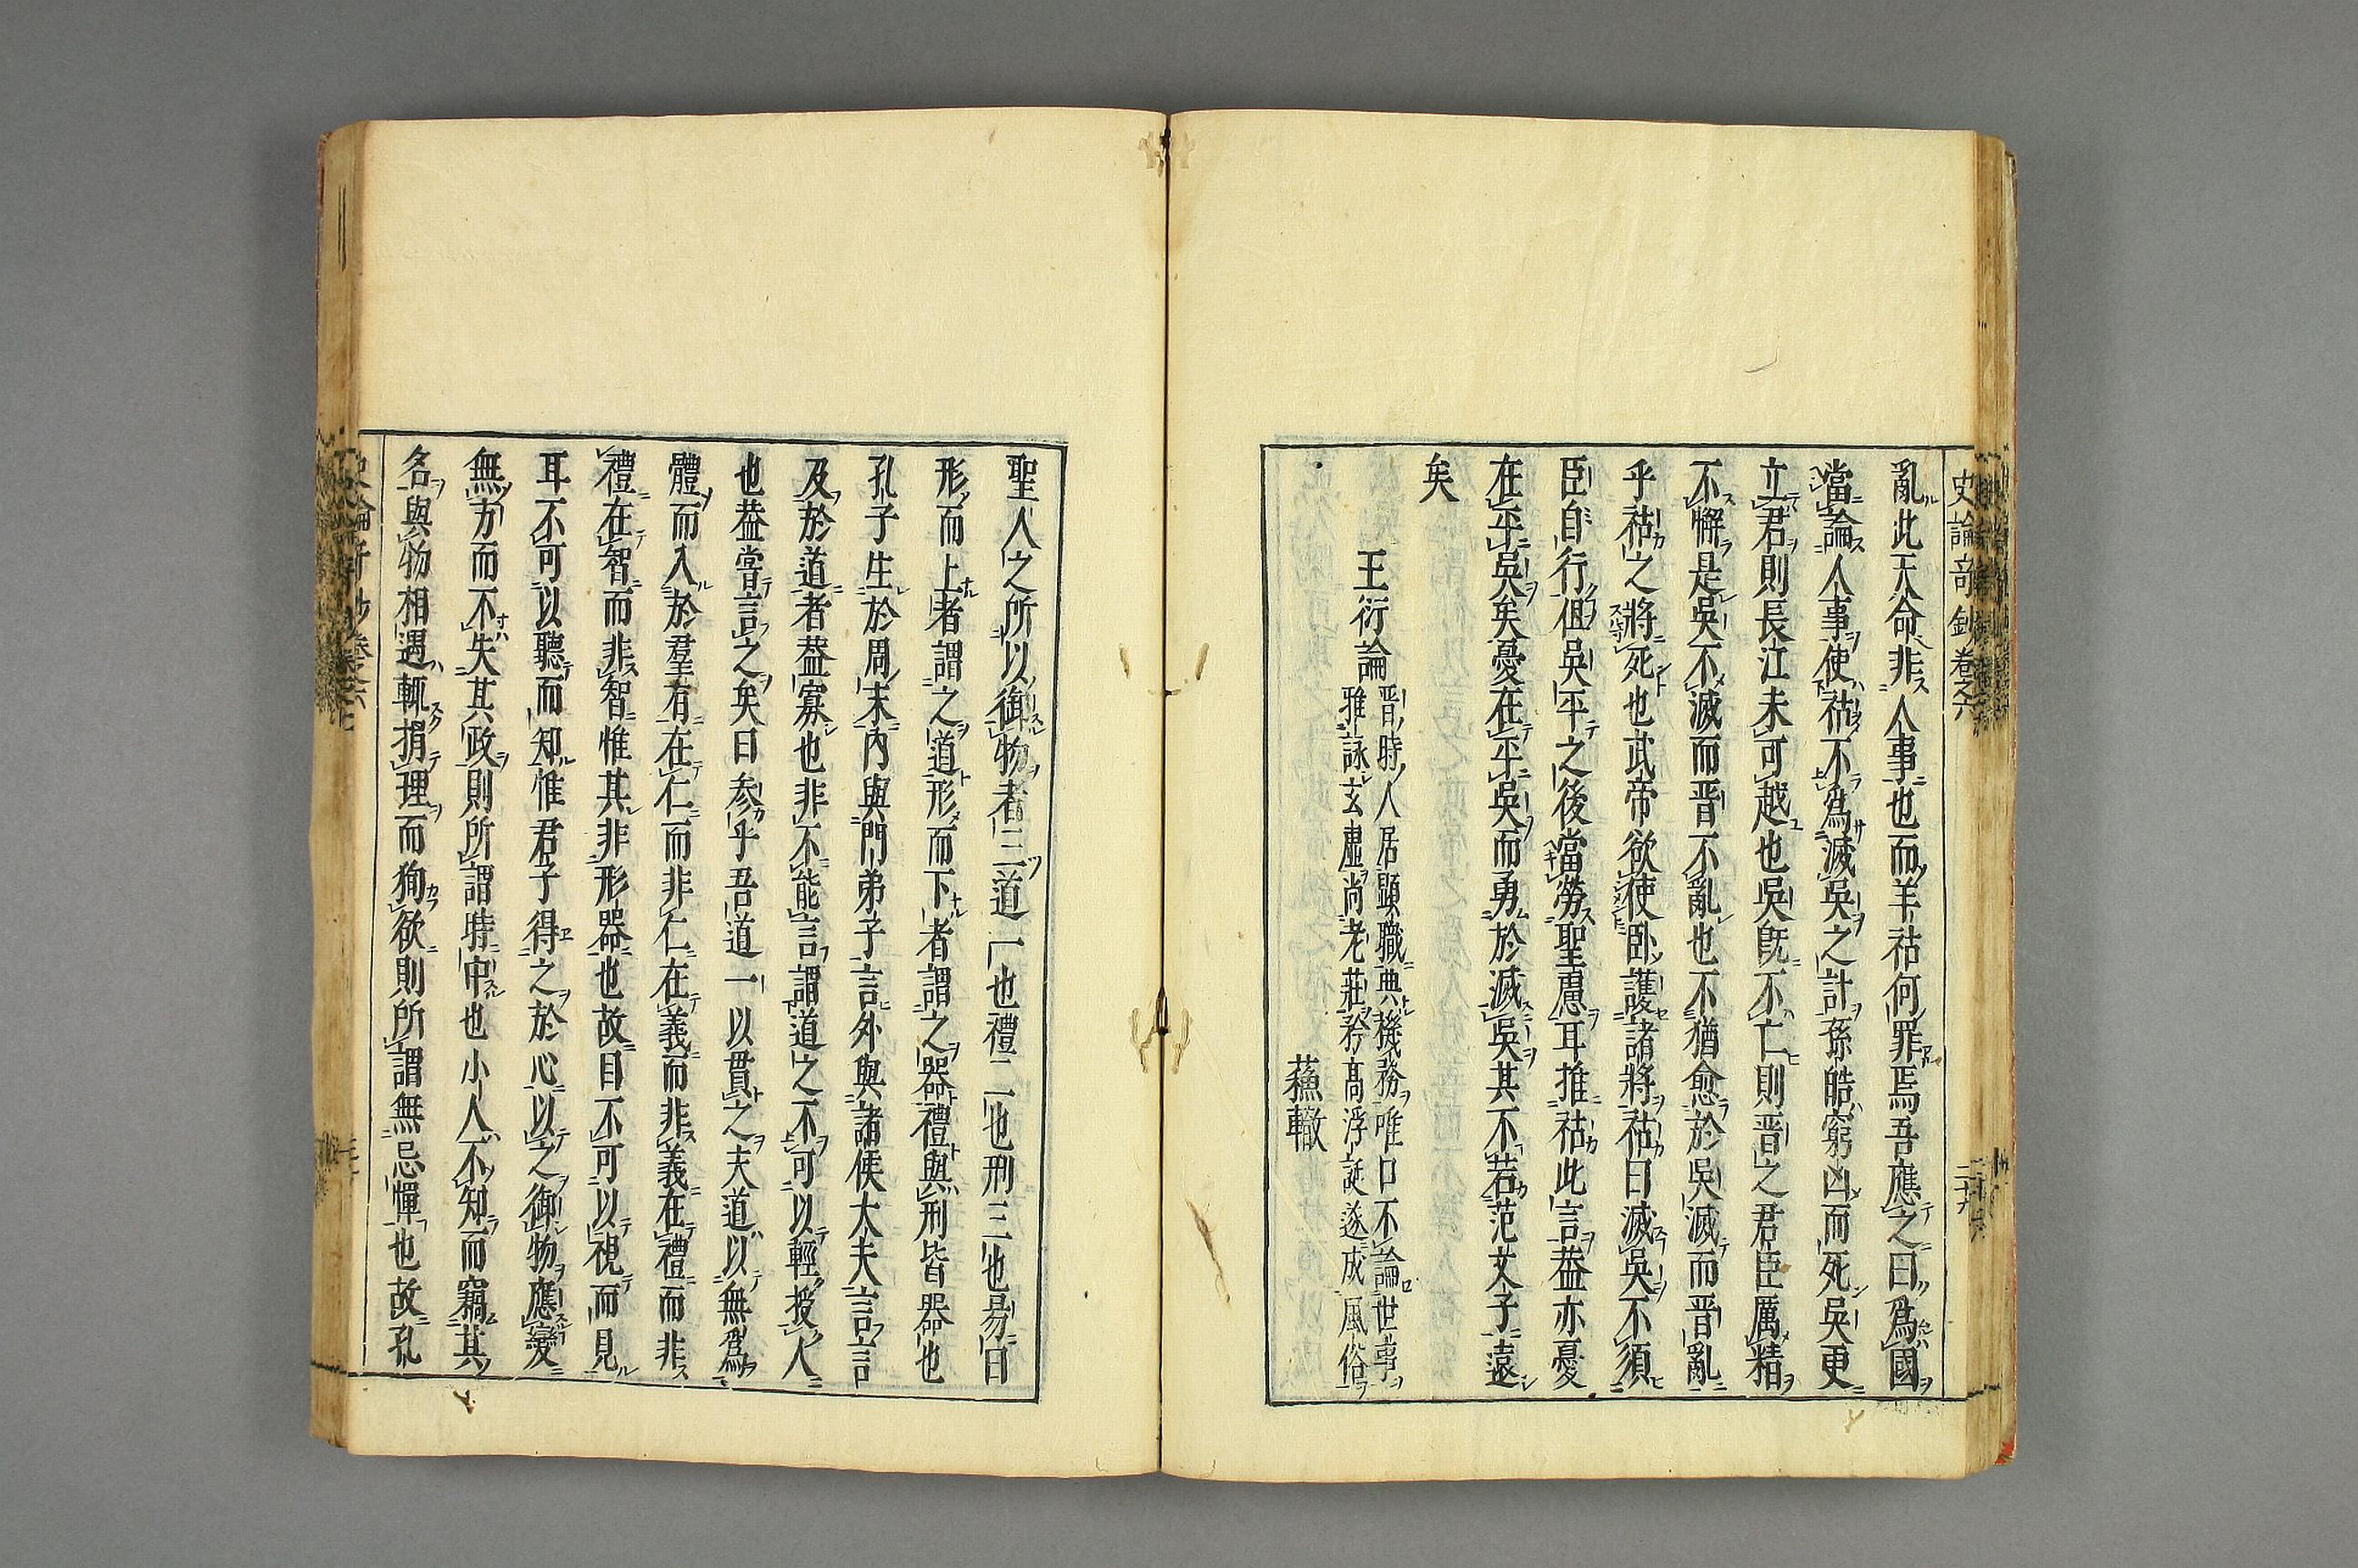 史論奇鈔卷之六
二十九
亂此天命非人事也而羊祜何罪焉吾應之曰爲國
當論人事使祜不爲滅吳之計孫皓窮凶而死吳更
立君則長江未可越也吳旣不亡則晋之君臣厲精
不懈是吳不滅而晋不亂也不猶愈於吳滅而晋亂
乎祜之將死也武帝欲使卧護諸將祜曰滅吳不須
臣自行伹吳平之後當勞聖慮耳推祜此言葢亦憂
在平吳矣憂在平吳而勇於滅吳其不若范文子遠
矣
王衍論
晋時人居顯職典機務唯口不論世事
雅詠玄虛尚老莊矜高浮誕遂成風俗
蘓轍
聖人之所以御物者三道一也禮二也刑三也易曰
形而上者謂之道形而下者謂之器禮與刑皆器也
孔子生於周末內與門弟子言外與諸侯大夫言言
及於道者葢寡也非不能言謂道之不可以輕授人
也葢甞言之矣曰参乎吾道一以貫之夫道以無爲
體而入於羣有在仁而非仁在義而非義在禮而非
禮在智而非智惟其非形器也故目不可以視而見
耳不可以聽而知惟君子得之於心以之御物應變
無方而不失其政則所謂時中也小人不知而竊其
名與物相遇輒捐理而狥欲則所謂無忌憚也故孔